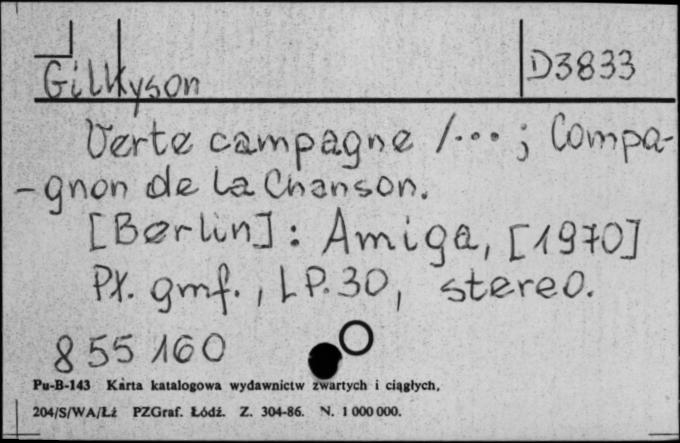 Gilkyson
D3833
Verte campagne /... ; Compa-
-gnon de la Chanson.
[Berlin] : Amiga, [1970]
Pł. gmf., LP. 30, stereo.
855 160
Pu-B-143 Karta katalogowa wydawnictw zwartych i ciągłych,
204/S/WA/Łź PZGraf. Łódź. Z. 304-86. N. 1 000 000.